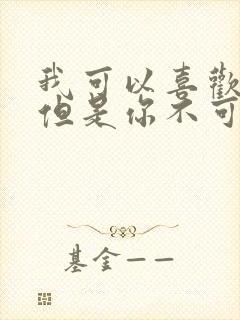 我可以喜歡
但是你不可
基金——